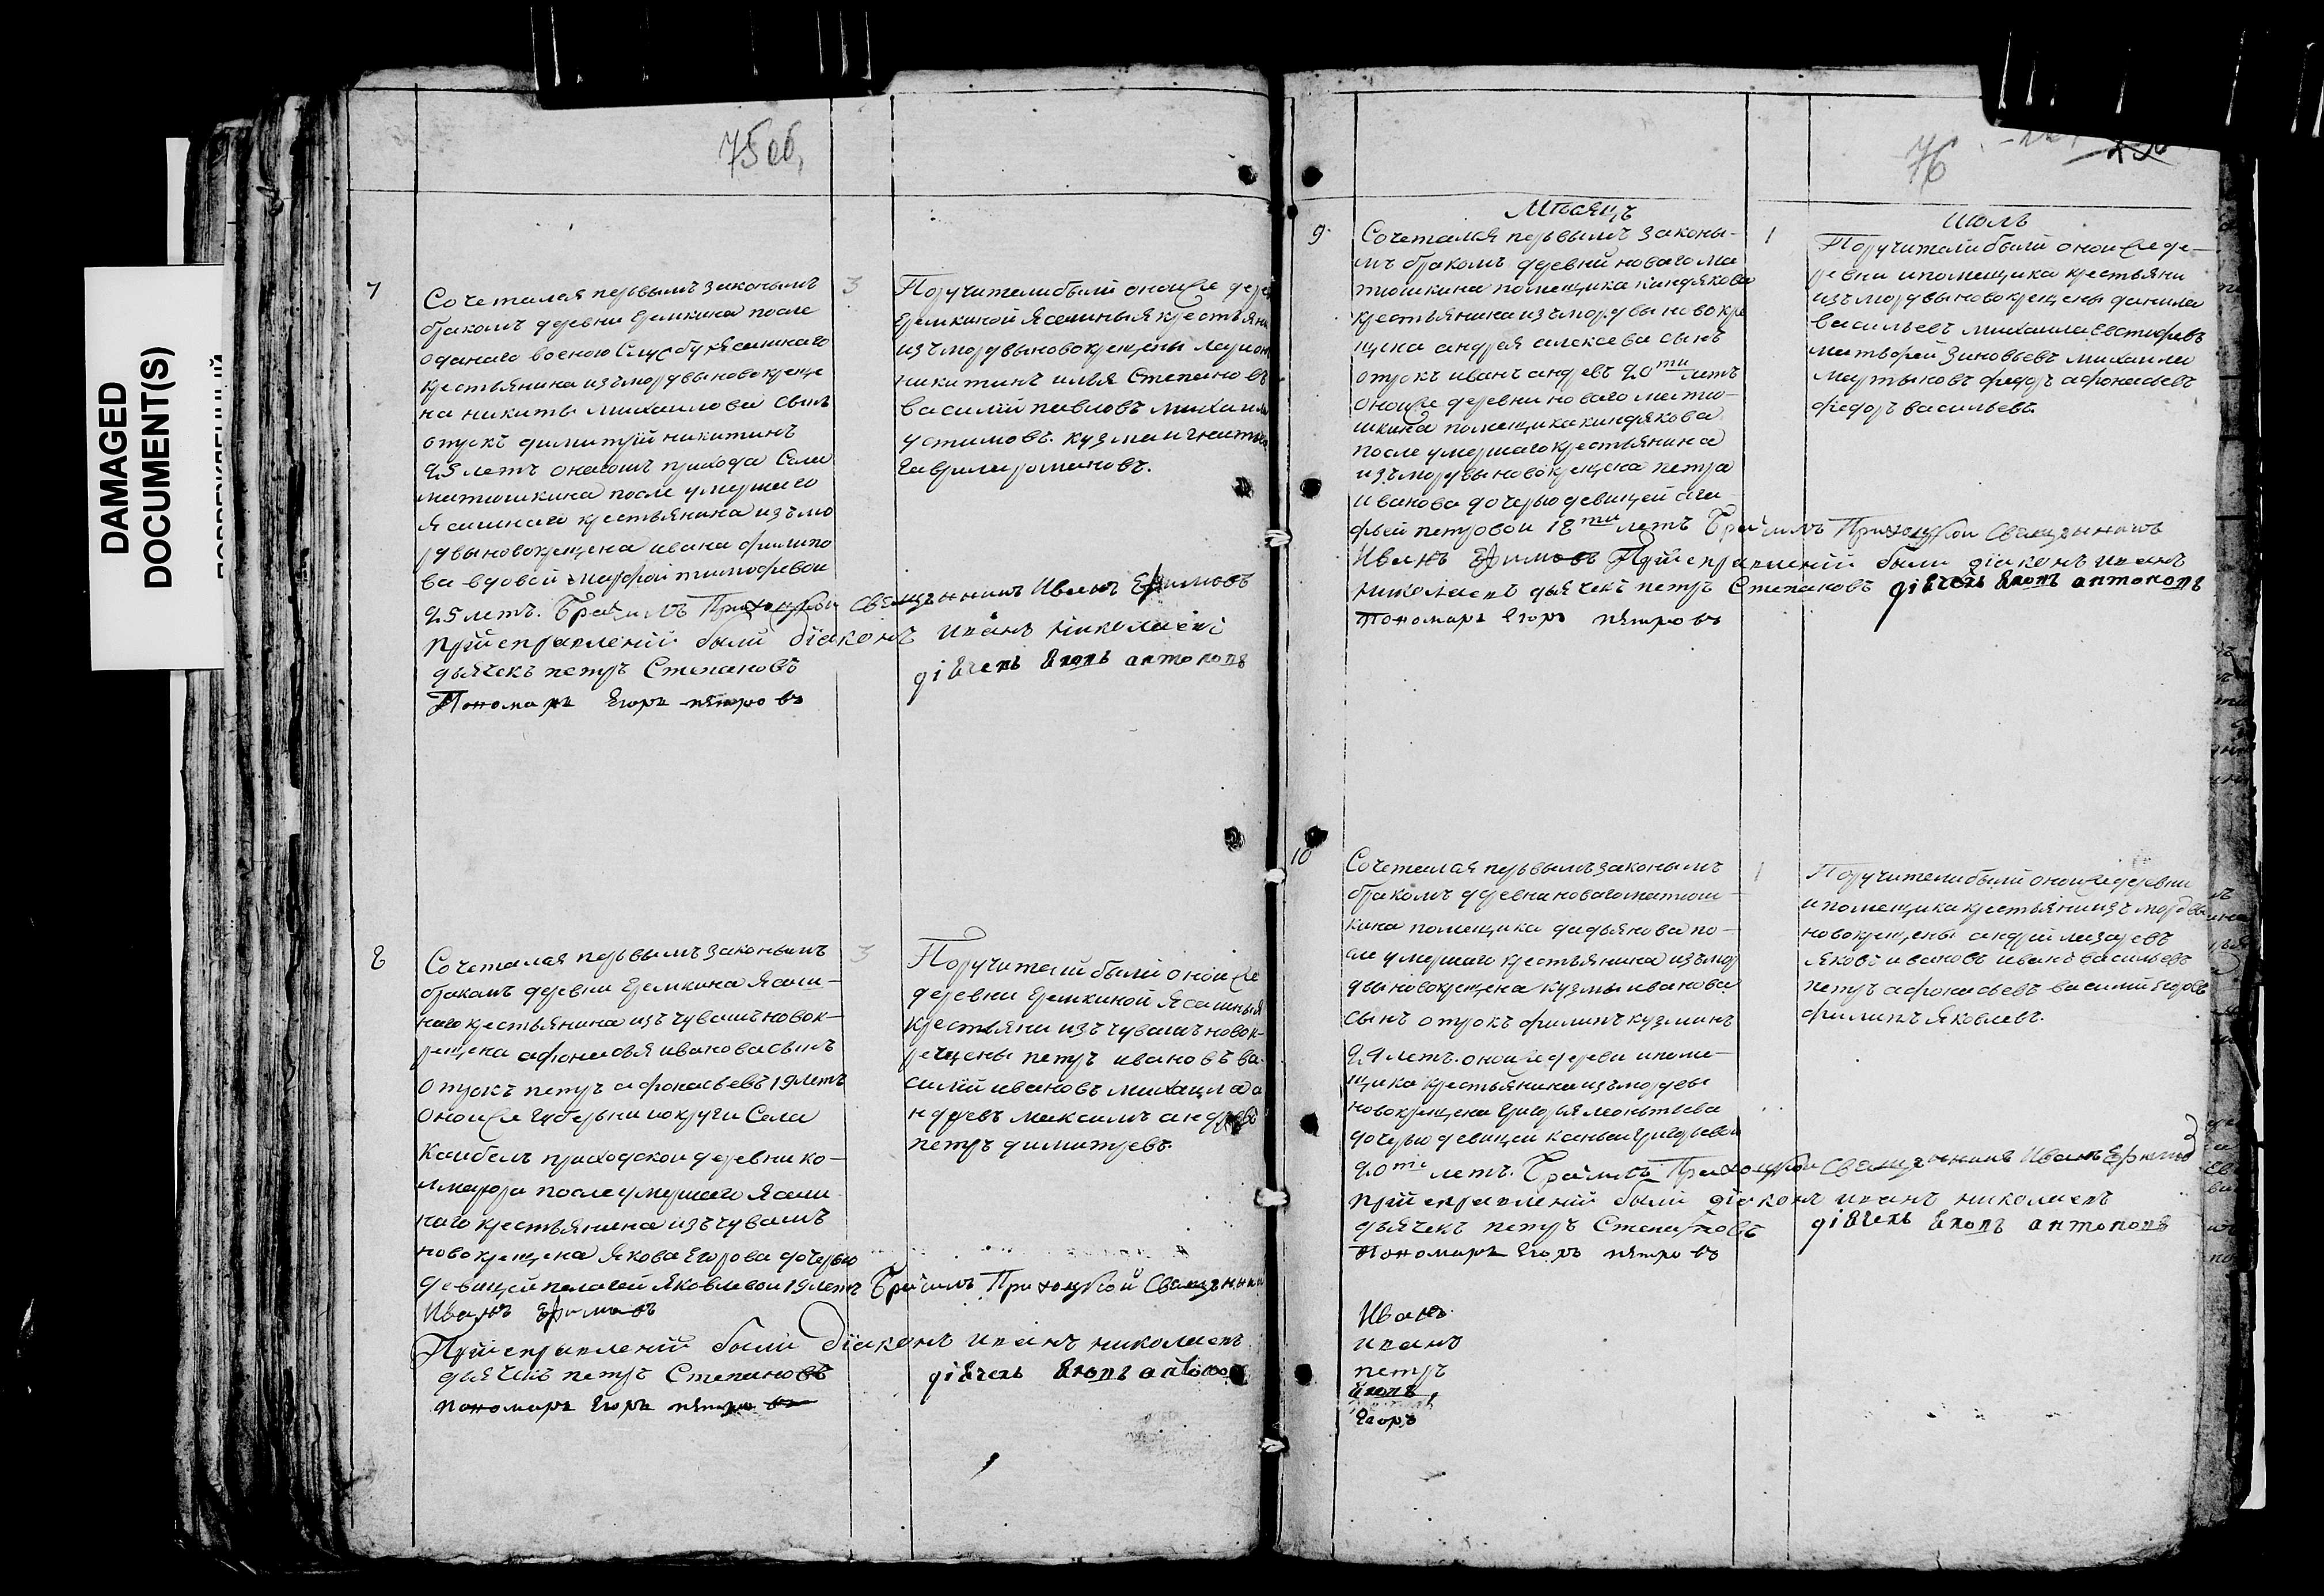 DAMAGED
DOCUMENT(S)
75 об,
7
Сочетался первымъ законымъ
бракомъ деревни Еремкина после
оданаго военою Службу ясашнаго
крестьянина изъ мордвы новокреще
на никиты михаилова сынъ
отрокъ димитрїй никитинъ
25 летъ онагожъ прихода Села
матюшкина после умершаго
Ясашнаго крестьянина изъ мо
рдвы новокрещена ивана филипо
ва вдовой марфой тимофевой
25 летъ. Брачилъ Приходской Священникъ Иванъ Ефимовъ
при исправленїй были дїаконъ иванъ николаевъ
дьячекъ петръ Степановъ
Пономарь Егоръ петровъ
3
Поручители были оной же дере
Еремкиной Ясашныя крестьяни
изъ мордвы новокрещены
никитинъ илья Степановъ
василїй павловъ михаила
устимовъ. кузма игнатьевъ
гаврила романовъ.
антоновъ
8
Сочетался первымъ законымъ
бракомъ деревни Еремкина Ясаш-
наго крестьянина изъ чувашъ новок-
рещена афонасья иванова сынъ
Отрокъ петръ афонасьевъ 19 летъ
оной же губерьни и округи Села
Каибелъ приходской деревни ко-
после умершаго Ясаш
наго крестьянина изъ чувашъ
новокрещена Якова Егорова дочерью
девицей пелагей Яковлевой 19 летъ Брачилъ Приходской Священникъ
Иванъ Ефимовъ
При исправленїй были дїаконъ иванъ николаевъ
дьячекъ петръ Степановъ
пономарь Егоръ петровъ
3
Поручители были оной же
деревни Еремкиной Ясашныя
крестьяни изъ чувашъ новок-
рещены петръ ивановъ ва
силїй ивановъ михаила а
ндреевъ максимъ андреевъ
петръ димитрevъ.
76
Мѣсяцъ
июль
9
Сочетался первымъ законы-
мъ бракомъ деревни новаго ма
тюшкина помещика киндякова
крестьянина изъ мордвы новокре
щена андрея алексева сынъ
отрокъ иванъ андревъ 20ти летъ
оной же деревни новаго матю-
шкина помещика киндякова
после умершаго крестьянина
изъ мордвы новокрещена петра
иванова дочерью девицей ага-
фьей петровой 18ти летъ Брачилъ Приходской Священникъ
Иванъ Ефимовъ При исправленїй были дїаконъ иванъ
николаевъ дьячекъ петръ Степановъ антоновъ
Пономарь Егоръ петровъ
1
Поручители были оной же де-
ревни и помещика крестьяни
изъ мордвы новокрещены данила
васильевъ михаила
матвфей Зиновьевъ михаила
мартыновъ федоръ афонасьевъ
федоръ васильевъ.
10
Сочетался первымъ законымъ
бракомъ деревни новаго матюш-
кина помещика по-
сле умершаго крестьянина изъ мор
двы новокрещена кузмы иванова
сынъ отрокъ филипъ кузминъ
24 летъ. оной же деревни и поме-
щика крестьянина изъ мордвы
новокрещена григорья леонтьева
дочерью девицей григорьевой
20ти летъ. Брачилъ Приходской Священникъ Иванъ Ефимовъ
при исправленїй были дїаконъ иванъ николаевъ
дьячекъ петръ Степановъ
антоновъ
Пономарь Егоръ петровъ
1
Поручители были оной же деревни
и помещика крестьяни изъ мордвы
новокрещены андрей лазаревъ
Яковъ ивановъ иванъ васильевъ
петръ афонасьевъ василїй Егоровъ
филипъ Яковлевъ.
Иванъ
иванъ
петръ
Егоръ